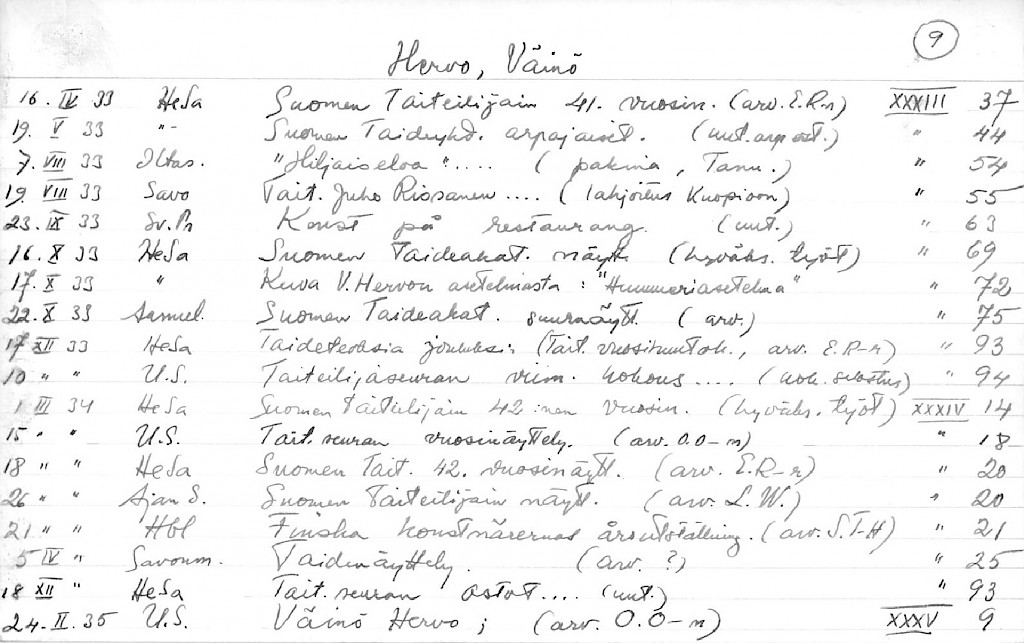 9
Hervo, Väinö
16. IV 33 HeSa Suomen Taiteilijain 41. vuosin. (arv. E.R-r) XXXIII 37
19. V 33 "- Suomen Taideyhd. arpajaiset. (uut. arp. ost.) " 44
7. VIII 33 Iltas. "Hiljaiseloa".... (pakina, Tanu.) " 54
19. VIII 33 Savo Tait. Juho Rissanen .... (lahjoitus Kuopioon) " 55
23. IX 33 Sv.Pr Konst på restaurang. (uut.) " 63
16. X 33 HeSa Suomen Taideakat. näyt. (hyväks. työt) " 69
17. X 33 " Kuva V. Hervon asetelmasta: "Hummeriasetelma" " 72
22. X 33 Aamul. Suomen Taideakat. suurnäytt. (arv.) " 75
17 XII 33 HeSa Taideteoksia jouluksi: (Tait. vuosihuutok., arv. E.R-r) " 93
10 " " U.S. Taiteilijaseuran viim. kokous .... (kok. selostus) " 94
1 III 34 HeSa Suomen Taiteilijain 42:nen vuosin. (hyväks. työt) XXXIV 14
15 " " U.S. Tait. seuran vuosinäyttely. (arv. O.O-n) " 18
18 " " HeSa Suomen Tait. 42. vuosinäytt. (arv. E.R-r) " 20
26 " " Ajan S. Suomen Taiteilijain näytt. (arv. L.W.) " 20
21 " " Hbl Finska konstnärernas årsutställning. (arv. S.T-H) " 21
5 IV " Savonm. Taidenäyttely. (arv. ?) " 25
18 XII " HeSa Tait. seuran ostot.... (uut.) " 93
24. II. 35 U.S. Väinö Hervo; (arv. O.O-n) XXXV 9